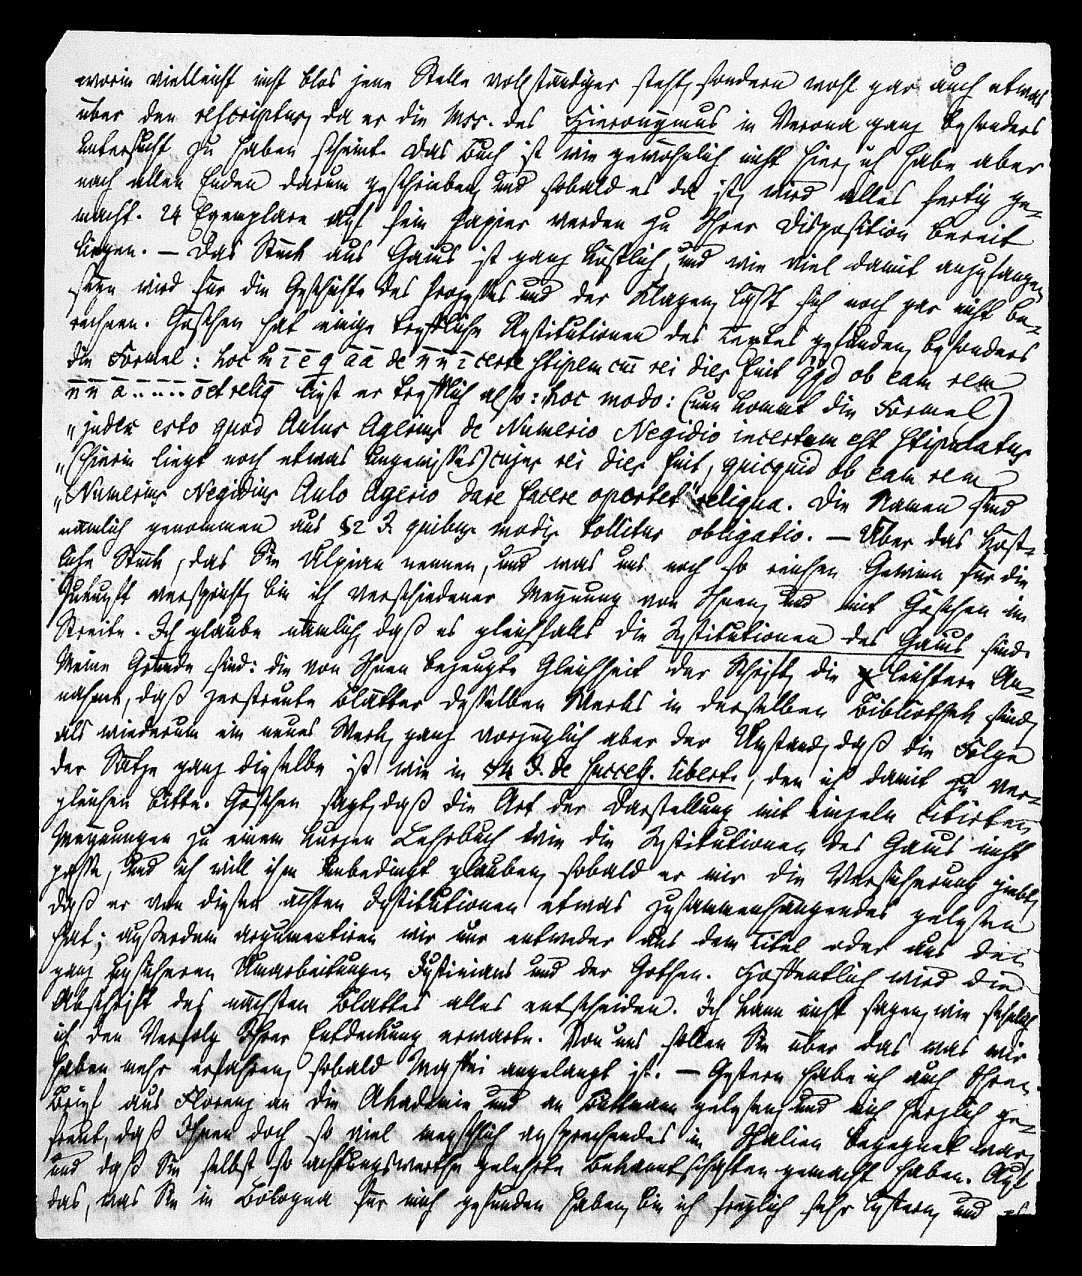 worin vielleicht nicht blos jene Stelle vollständiger steht, sondern wohl gar auch etwas
über den rescriptus, da er die Mss. des Hieronymus in Verona ganz besonders
untersucht zu haben scheint. Das Buch ist wie gewöhnlich nicht hier, ich habe aber
nach allen Enden darum geschrieben, und sobald es da ist, wird alles fertig ge-
macht. 24 Exemplare auf fein Papier werden zu Ihrer Disposition bereit
liegen. – Das Stück aus Gaius ist ganz köstlich, und wie viel damit anzufangen
seyn wird für die Geschichte des Prozesses und der Klagen, läßt sich noch gar nicht be-
rechnen. Göschen hat einige treffliche Restitutionen des Textes gefunden, besonders
die Formel: hoc m̄ ī ē q̄ āā de n̄ n̄ īcerte stiplem cui rei dies fuit qqd ob eam rem
n̄ n̄ ā ..... oct reliq liest er trefflich also: hoc modo: (nun kommt die Formel)
„judex esto quod Aulus Agerius de Numerio Negidio incertum est stipulatus
„(hierin liegt noch etwas Ungewisses) cujus rei dies fuit, quicquid ob eam rem
„Numerius Negidius Aulo Agerio dare facere oportet“ reliqua. Die Namen sind
nämlich genommen aus §2 J. quibus modis tollitur obligatio. – Über das köst-
liche Stück, das Sie Ulpian nennen, und was uns noch so reichen Gewinn für die
Zukunft verspricht, bin ich verschiedener Meynung von Ihnen, und mit Göschen im
Streite. Ich glaube nämlich, daß es gleichfalls die Institutionen des Gaius sind.
Meine Gründe sind: die von Ihnen bezeugte Gleichheit der Schrift, die leichtere An-
nahme, daß zerstreute Blätter desselben Werks in derselben Bibliothek sind,
als wiederum ein neues Werk, ganz vorzüglich aber der Umstand, daß die Folge
der Sätze ganz dieselbe ist, wie in §4 J. de success. libert., den ich damit zu ver-
gleichen bitte. Göschen sagt, daß die Art der Darstellung mit einzeln citirten
Meynungen zu einem kurzen Lehrbuch wie die Institutionen des Gaius nicht
passe, und ich will ihm unbedingt glauben, sobald er mir die Versicherung giebt,
daß er von diesen ächten Institutionen etwas zusammenhängendes gelesen
hat; außerdem argumentiren wir nur entweder aus dem Titel oder aus den
ganz unsicheren Umarbeitungen Justinians und der Gothen. Hoffentlich wird die
Abschrift des nächsten Blattes alles entscheiden. Ich kann nicht sagen, wie sehnlich
ich den Verfolg Ihrer Entdeckung erwarte. Von uns sollen Sie über das was wir
haben mehr erfahren, sobald Maffei angelangt ist. – Gestern habe ich auch Ihren
Brief aus Florenz an die Akademie und an Buttmann gelesen, und mich herzlich ge-
freut, daß Ihnen doch so viel menschlich ansprechendes in Italien begegnet war,
und daß Sie selbst so achtungswerthe gelehrte Bekanntschaften gemacht haben. Auf
das, was Sie in Bologna für mich gefunden haben, bin ich freylich sehr lüstern, und